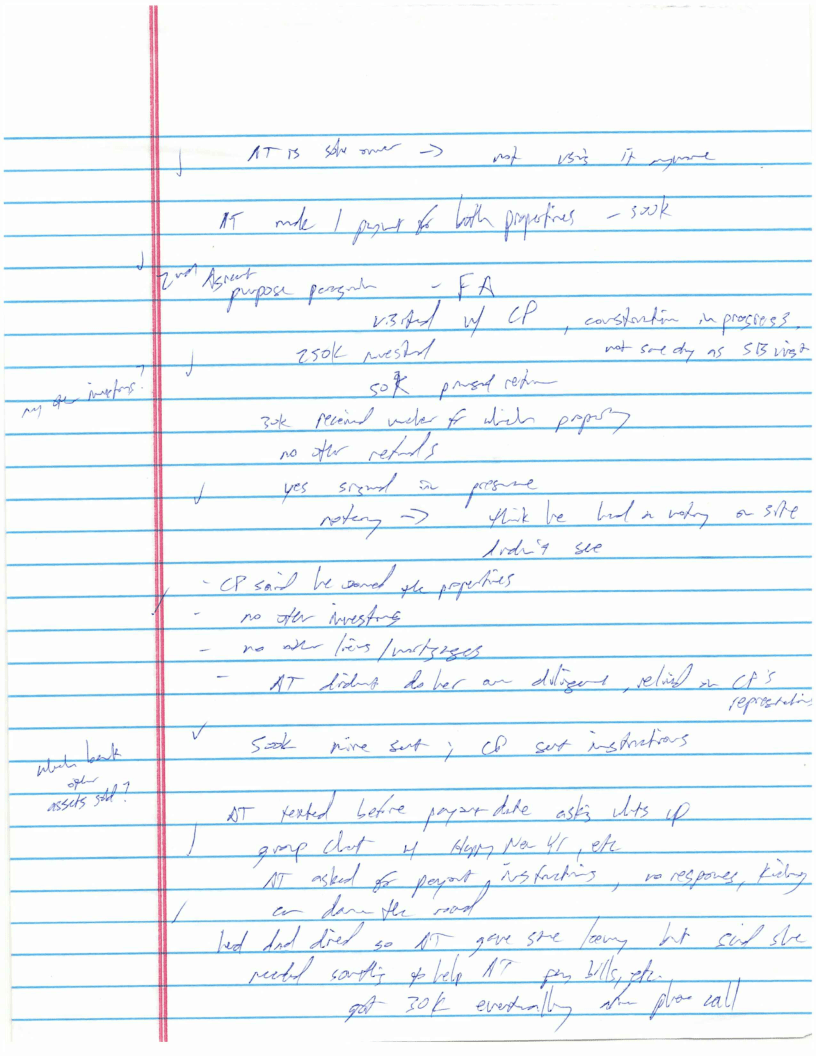 AT is sole owner → not using it anymore
AT made 1 payment for both properties - 500k
2nd Agreement
purpose paragraph - FA
visited w/ CP, construction in progress,
not same day as SIB visit
250k invested
any other investors?
50k promised return
30k received under for which property
no other refunds
yes signed in presence
notary → think he had a notary on site
didn't see
- CP said he owned the properties
- no other investors
- no other liens/mortgages
- AT didn't do her own diligence, relied on CP's
representations
500k wire sent; CP sent instructions
which bank
other
assets sold?
AT texted before payout date asking what's up
group chat w/ Happy New Yr, etc
AT asked for payout, instructions, no response, kicking
can down the road
dad died so AT gave some leeway but said she
needed something to help AT pay bills, etc.
got 30k eventually after phone call